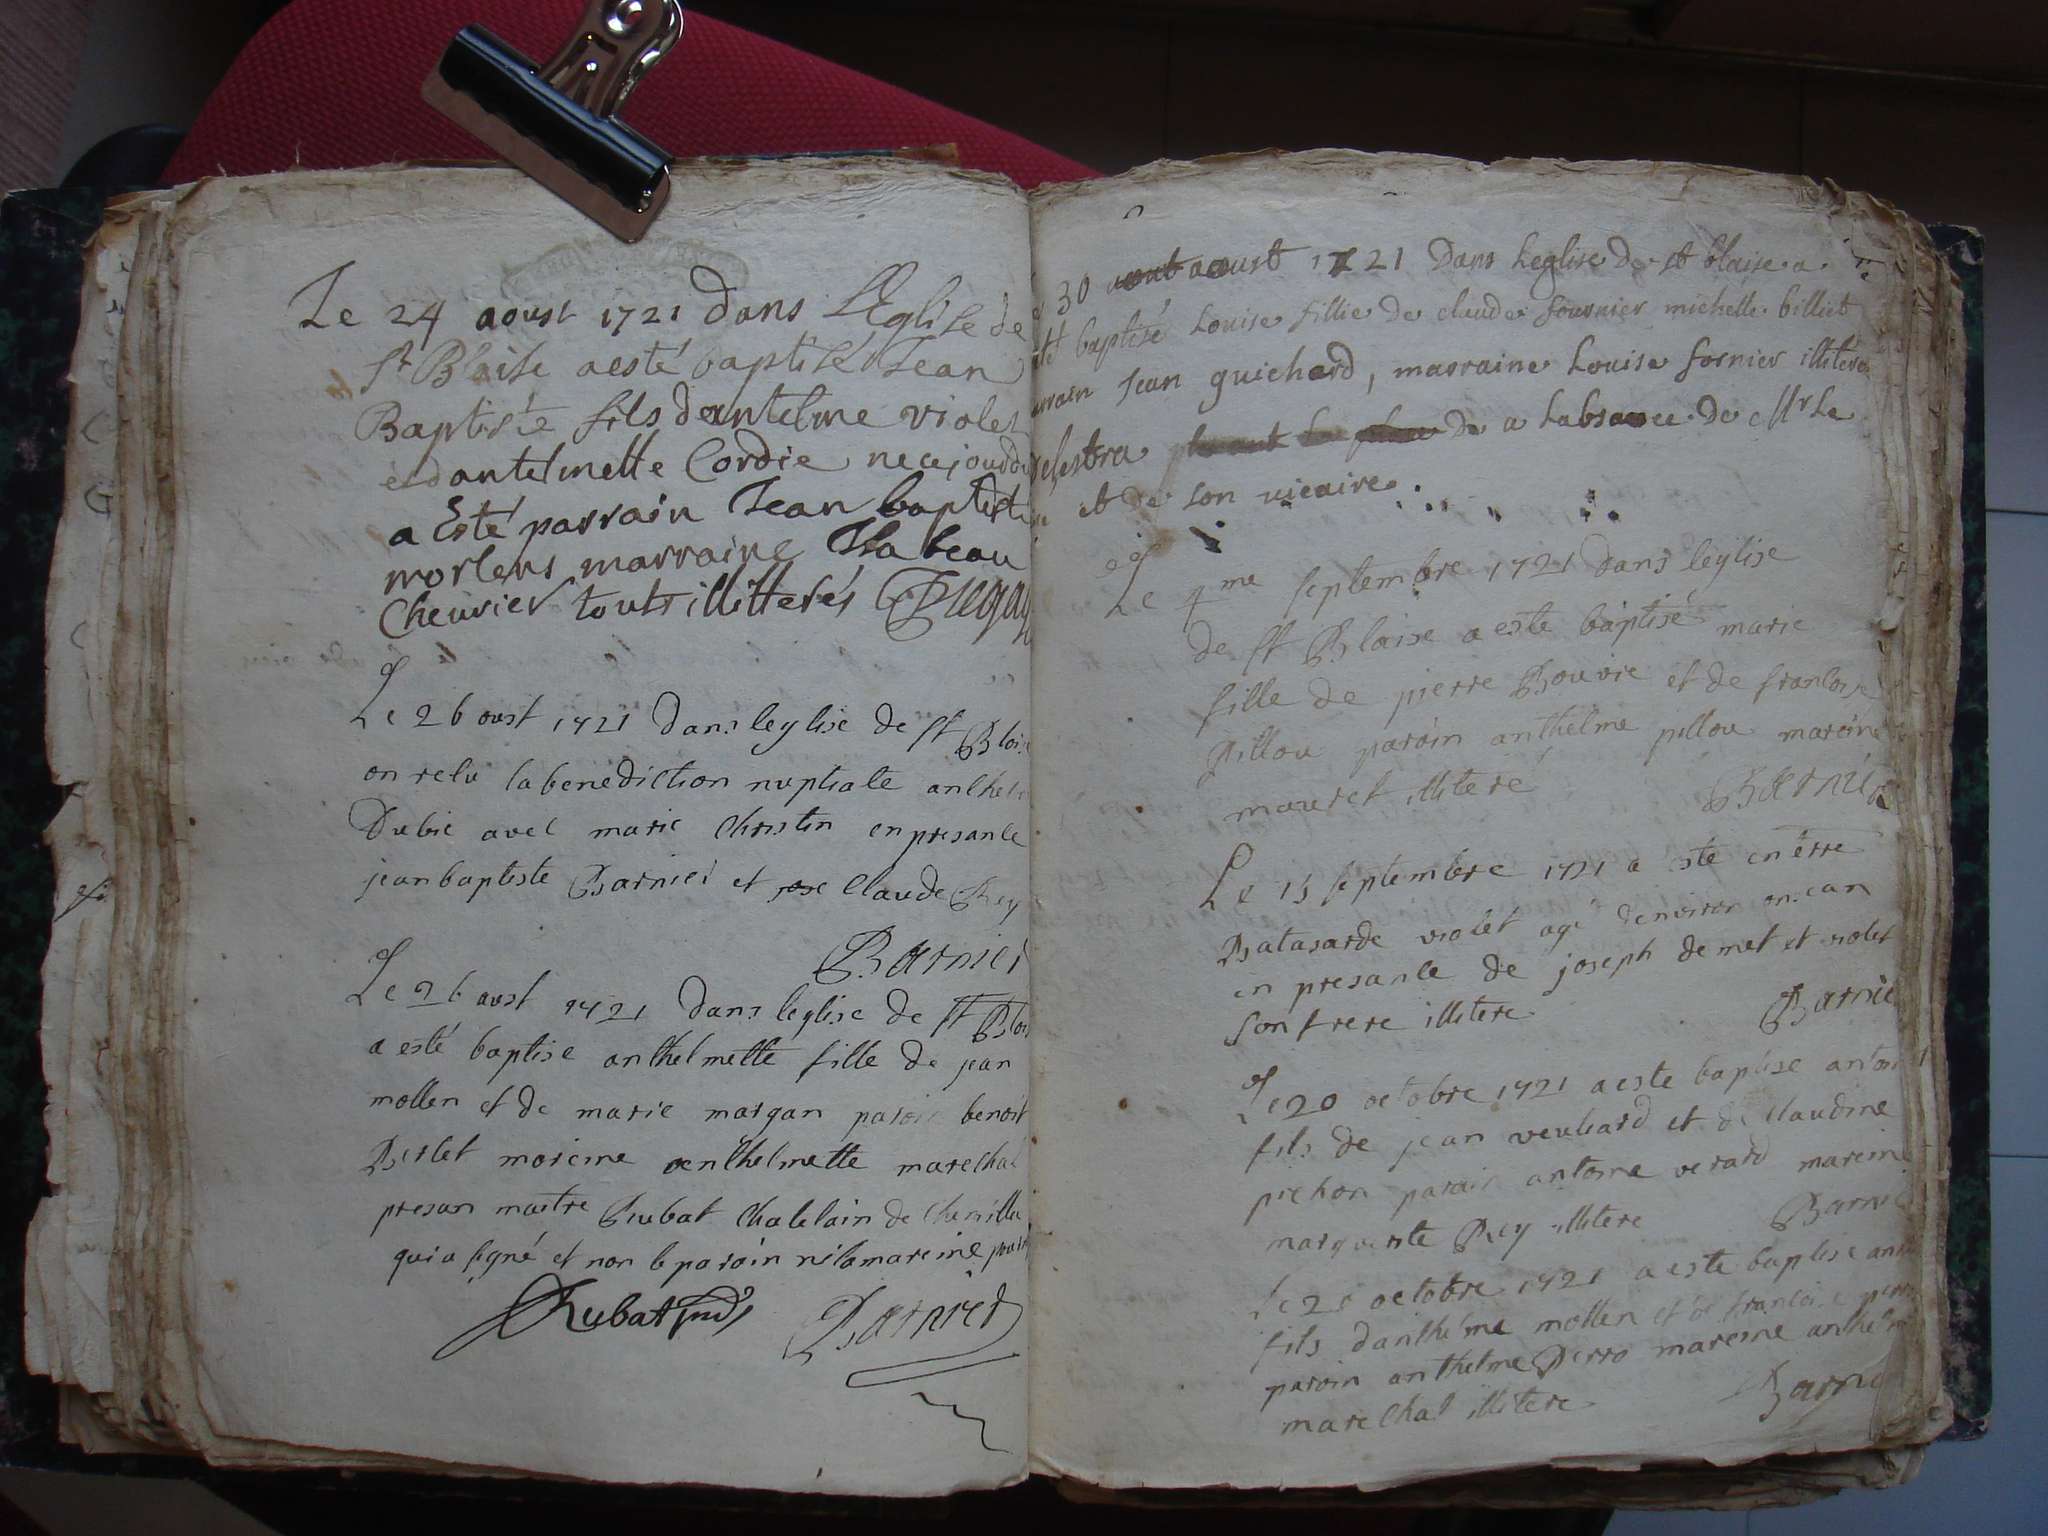 Le 24 aoust 1721 dans L'Eglise de
St Blaise a esté baptisé Jean
Baptiste fils dantelme violet
et dantelmette Cordie ne cejourd
a Esté parrain Jean baptiste
morlens marraine Isabeau
Cheuvier touts illitterés
Le 26 oust 1721 dans leglise de st Blois
on resu la benediction nuptiale anthel
Dubie avec marie Christin en presance
jean baptiste Barnier et Claude Rey
Barnier
Le 26 aust 1721 dans leglise de st Blois
a esté baptise anthelmette fille de jean
mollen et de marie margan paroin benoit
Berlet moreine anthelmette marechal
presan maitre Rubat Chatelain de Chemilleu
qui a signé et non le paroin ni la mareine pour
Rubat Barnier
30 aoust 1721 Dans Leglise De st blaise a
été baptisé Louise fillie De claude fournier michelle billiet
parrain Jean guichard, marraine Louise fornier illiteres
Delestra De a Labsance De Mr Le
et De son vicaire
Le 4me septembre 1721 dans leglise
de st Blaise a este baptisé marie
fille de pierre Bouvie et de francoise
Pillou paroin anthelme pillou maroine
mauret illiteré Barnier
Le 15 septembre 1721 a este enterre
Batasarde violet agé denviron onsean
en presance de joseph demet et violet
son frere illitere Barnie
Le 20 octobre 1721 a este baptise antoi
fils de jean veuliard et de Claudine
pichon paroin antoine verard mareine
marguerite Rey illitere Barnie
Le 21 octobre 1721 a este baptise an
fils danthelme mollen et de francoise perro
paroin anthelme Perro mareine anthelm
marechal illitere Barni